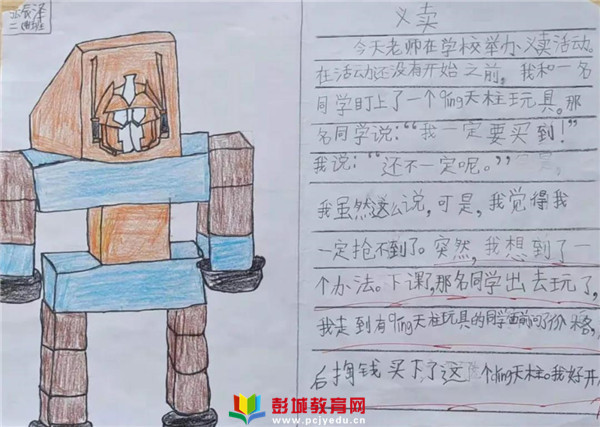 义卖
今天老师在学校举办义卖活动。
在活动还没有开始之前。我和一名
同学盯上了一个qing天柱玩具。那
名同学说:“我一定要买到!”
我说:“还不一定呢。”
我虽然这么说,可是,我觉得我
一定抢不到了。突然,我想到了一
个办法。下课,那名同学出去玩了,
我走到有qing天柱玩具的同学面前问了价格,
后掏钱买下了这个qing天柱。我好开
彭城教育网
www.pcjyedu.cn